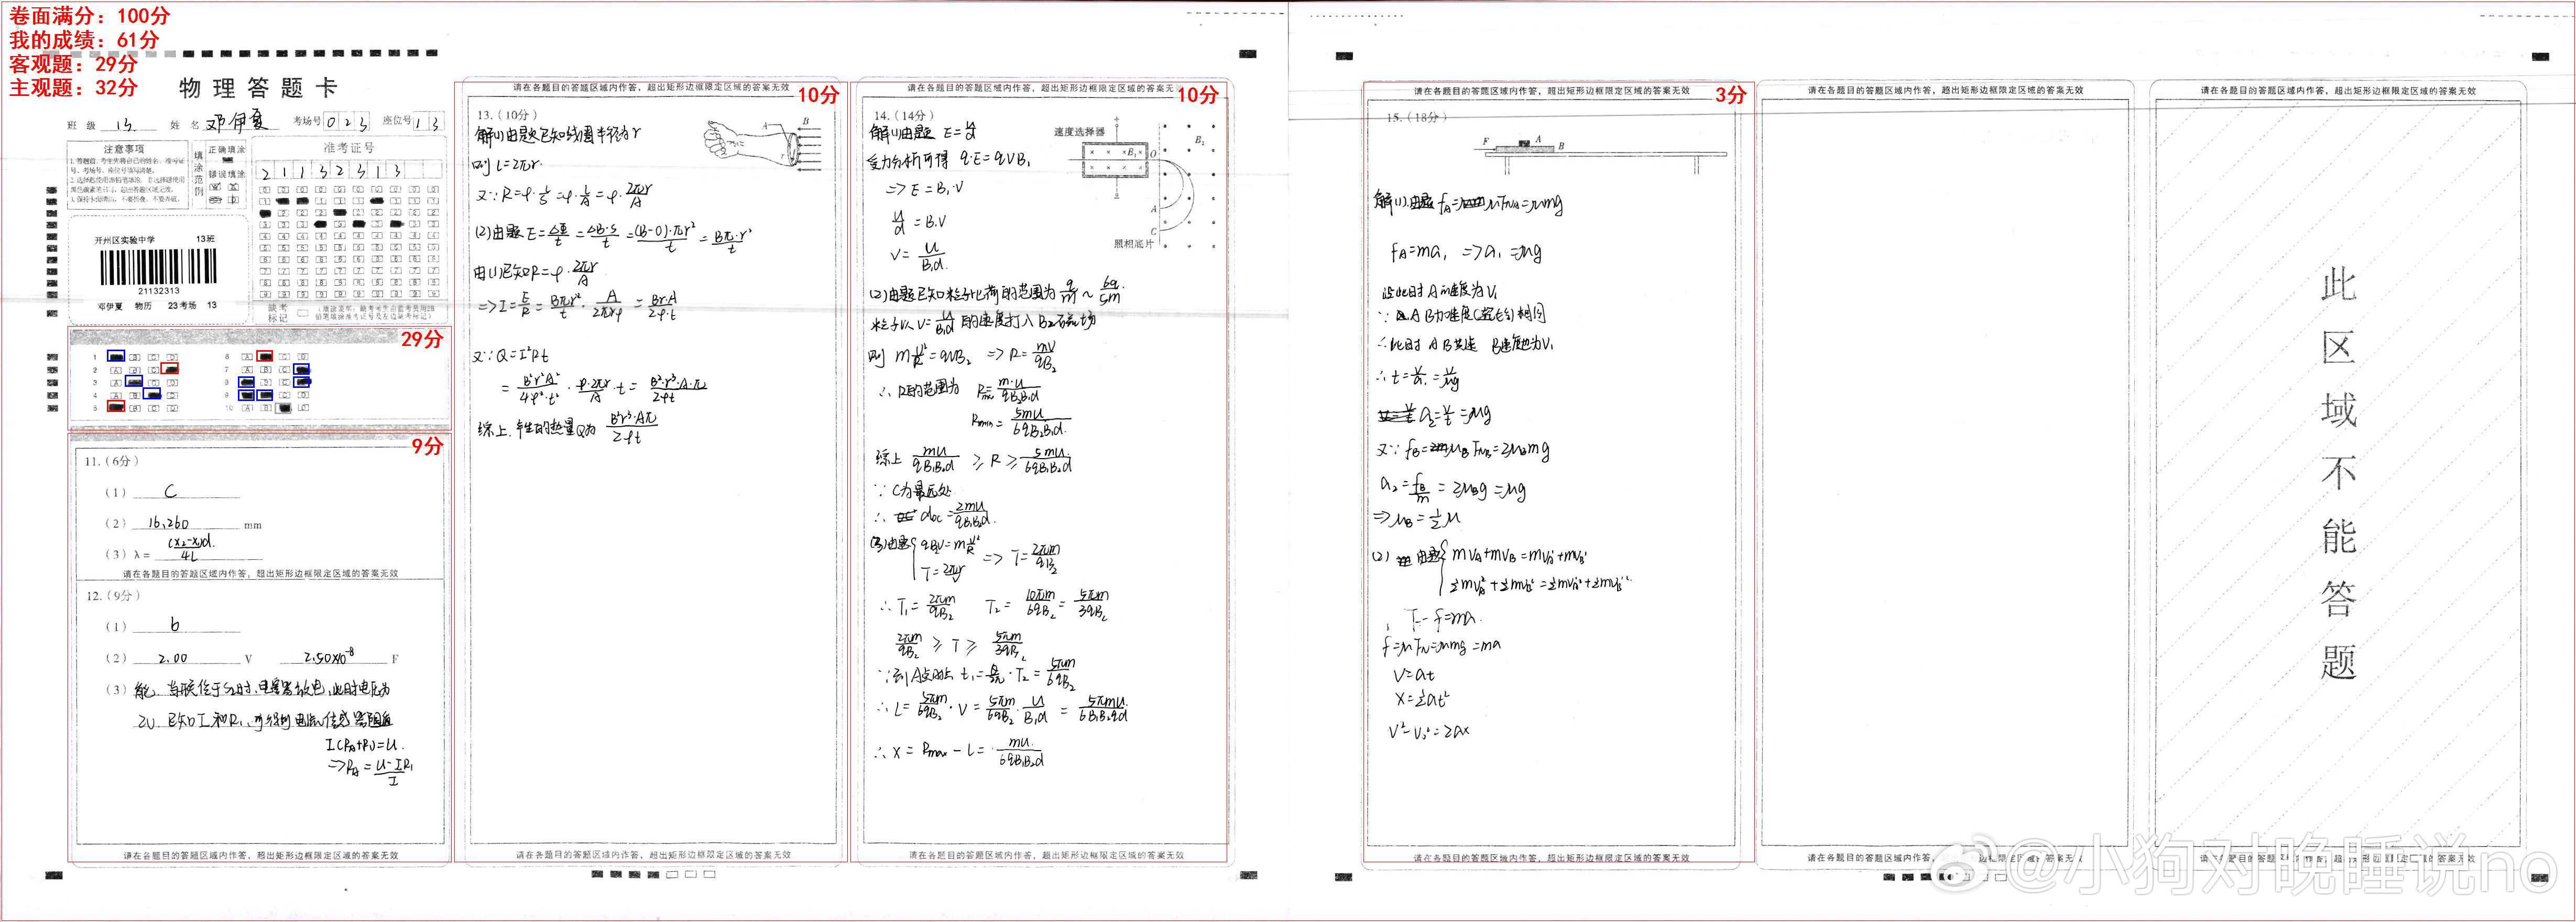 卷面满分：100分
我的成绩：61分
客观题：29分
主观题：32分
物理答题卡
班级 13. 姓名 邓伊夏 考场号 023 座位号 13
注意事项
填涂范例
正确填涂
错误填涂
准考证号
21132313
开州区实验中学 13班
21132313
邓伊夏 物历 23考场 13
缺考标记
29分
9分
11.（6分）
（1） C
（2） 16.260 mm
（3）λ= (x₂-x₁)d/4L
请在各题目的答题区域内作答，超出矩形边框限定区域的答案无效
12.（9分）
（1） b
（2） 2.00 V 2.50×10⁻⁸ F
（3）能，当开关位于S₂时，电容器放电，此时电压为
2U，已知I和R₁，可得到电流传感器阻值
I(R_A+R₁)=U.
=>R_A=(U-IR₁)/I
请在各题目的答题区域内作答，超出矩形边框限定区域的答案无效
请在各题目的答题区域内作答，超出矩形边框限定区域的答案无效
10分
13.（10分）
A B r
解(1)由题已知线圈半径为r
则L=2πr
又∵R=ρ·L/S=ρ·L/A=ρ·2πr/A
(2)由题E=ΔΦ/t=ΔB·S/t=(B-0)·πr²/t=Bπ·r²/t
由(1)已知R=ρ·2πr/A
=>I=E/R=Bπr²/t·A/2πrρ=Br·A/2ρ·t
又∵Q=I²Rt
=B²r²A²/4ρ²·t²·ρ·2πr/A·t=B²·r³·A·π/2ρt
综上，产生的热量Q为 B²r³·Aπ/2ρt
请在各题目的答题区域内作答，超出矩形边框限定区域的答案无效
请在各题目的答题区域内作答，超出矩形边框限定区域的答案无效
10分
14.（14分）
速度选择器
B₁ O B₂
A
C
照相底片
解(1)由题 E=U/d
受力分析可得 q·E=qVB₁
=>E=B₁·V
U/d=B₁V
V=U/B₁d
(2)由题已知粒子比荷的范围为 q/m~6q/5m
粒子以V=U/B₁d的速度打入B₂磁场
则 mV²/R=qVB₂ =>R=mV/qB₂
∴R的范围为 Rmax=m·U/qB₂B₁d
Rmin=5mU/6qB₁B₂d
综上 mU/qB₁B₂d ≥R≥ 5mU/6qB₁B₂d
∵C为最远处
∴doc=2mU/qB₁B₂d
(3)由题{qBV=mV²/R
T=2πr/V => T=2πm/qB₂
∴T₁=2πm/qB₂ T₂=10πm/6qB₂=5πm/3qB₂
2πm/qB₂ ≥T≥ 5πm/3qB₂
∴L=5πm/6qB₂·V=5πm/6qB₂·U/B₁d=5πmU/6B₁B₂qd
∴X=Rmax-L=mU/6qB₁B₂d
请在各题目的答题区域内作答，超出矩形边框限定区域的答案无效
请在各题目的答题区域内作答，超出矩形边框限定区域的答案无效
3分
15.（18分）
F A B
解(1).由题f_A=μF_NA=μmg
f_A=ma₁ =>a₁=μg
设此时A的速度为V₁
∴此时AB共速 B速度也为V₁
∴t=V/a₁=V/μg
a₂=V/t=μg
又∵f_B=μ_B F_NB=2μ_Bmg
a₂=f_B/m=2μ_Bg=μg
=>μ_B=½μ
(2)由题{mV_A+mV_B=mV_A'+mV_B'
½mV_A²+½mV_B²=½mV_A'²+½mV_B'²
F-f=ma.
f=μF_N=μmg=ma
V=at
X=½at²
V²-V₀²=2ax
请在各题目的答题区域内作答，超出矩形边框限定区域的答案无效
请在各题目的答题区域内作答，超出矩形边框限定区域的答案无效
请在各题目的答题区域内作答，超出矩形边框限定区域的答案无效
请在各题目的答题区域内作答，超出矩形边框限定区域的答案无效
此区域不能答题
@小狗对晚睡说no